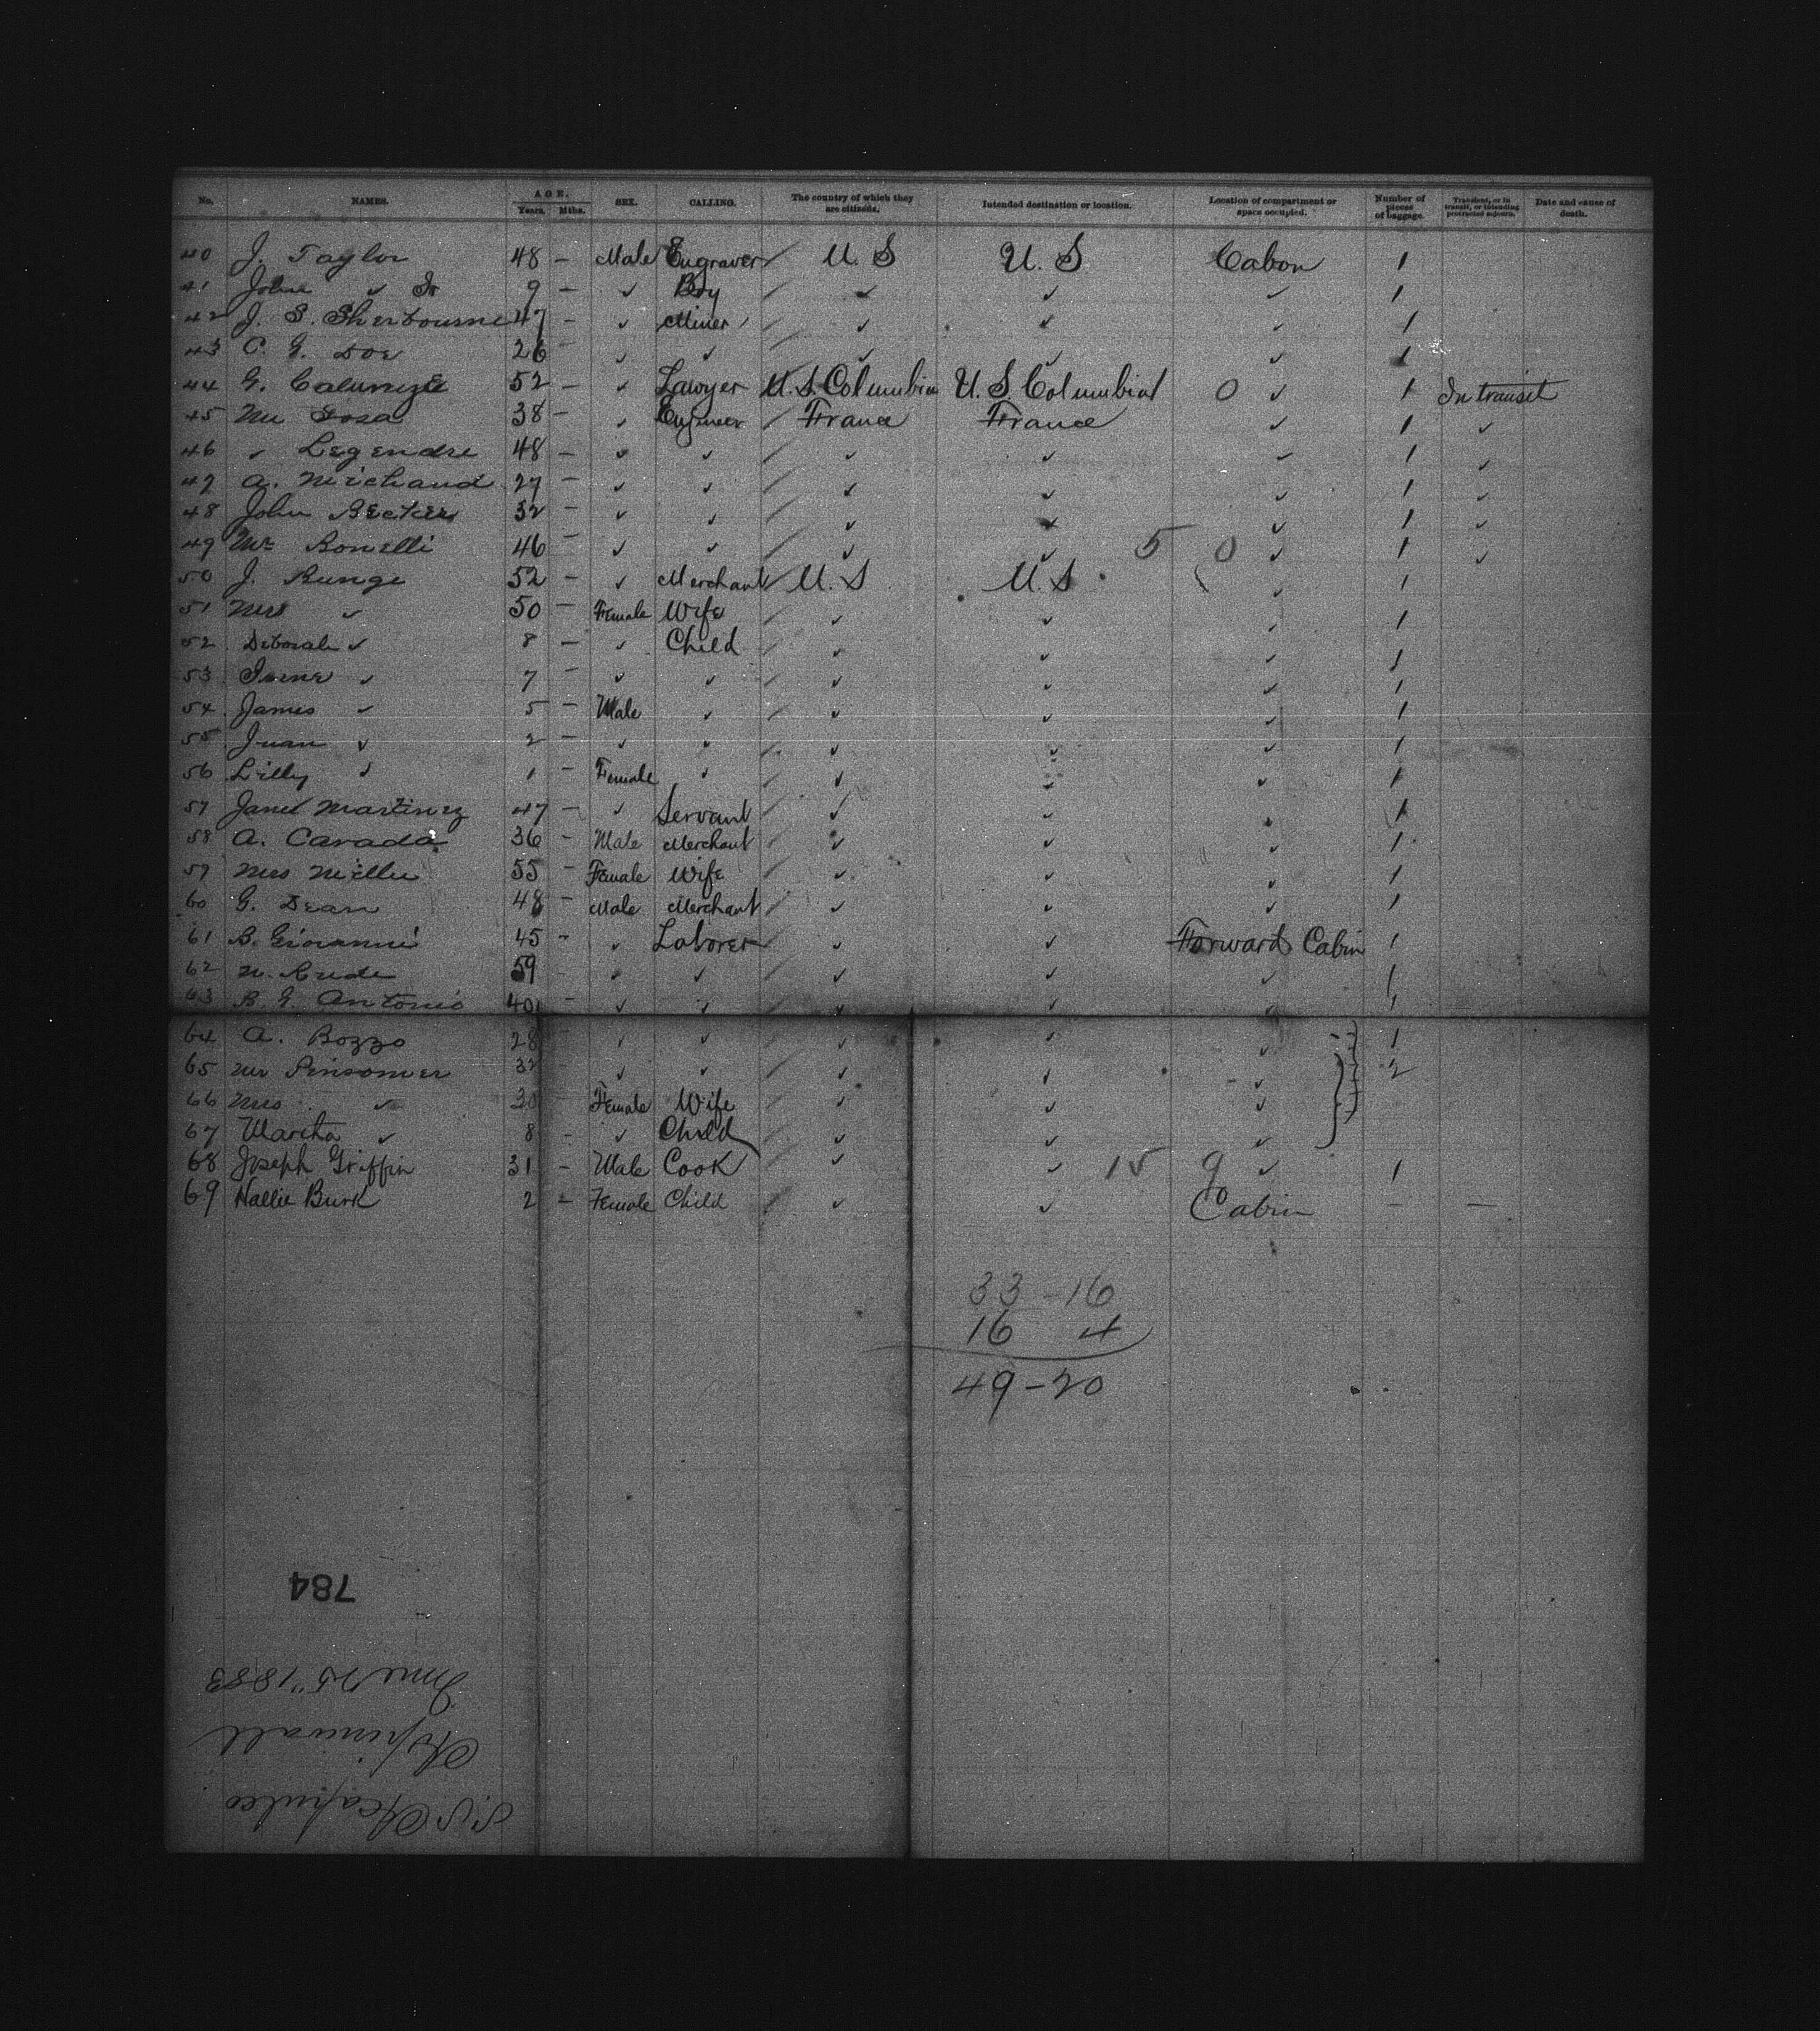 No. NAMES. AGE. Years. Mths. SEX. CALLING. The country of which they are citizens. Intended destination or location. Location of compartment or space occupied. Number of pieces of baggage. Transient, or in transit, or intending protracted sojourn. Date and cause of death.
40 J. Taylor 48 – Male Engraver U.S U.S Cabon 1
41 John ✓ Jr 9 – ✓ Boy ✓ ✓ ✓ 1
42 J. S. Sherbourne 47 – ✓ Miner ✓ ✓ ✓ 1
43 C. G. Doe 26 – ✓ ✓ ✓ ✓ ✓ 1
44 G. 52 – ✓ Lawyer U.S. Columbia U.S. Columbia 0 ✓ 1 In transit
45 38 – ✓ Engineer France France ✓ 1 ✓
46 ✓ Legendre 48 – ✓ ✓ ✓ ✓ ✓ 1 ✓
47 A. Michaud 27 – ✓ ✓ ✓ ✓ ✓ 1 ✓
48 John Becker 32 – ✓ ✓ ✓ ✓ ✓ 1 ✓
49 Mr Bonelli 46 – ✓ ✓ ✓ ✓ 5 0 ✓ 1 ✓
50 J. Runge 52 – ✓ Merchant U.S U.S ✓ 1
51 Mrs ✓ 50 – Female Wife ✓ ✓ ✓ 1
52 Deborah ✓ 8 – ✓ Child ✓ ✓ ✓ 1
53 Irene ✓ 7 – ✓ ✓ ✓ ✓ ✓ 1
54 James ✓ 5 – Male ✓ ✓ ✓ ✓ 1
55 Juan ✓ 2 – ✓ ✓ ✓ ✓ ✓ 1
56 Lilly ✓ 1 – Female ✓ ✓ ✓ ✓ 1
57 Janet Martinez 47 – ✓ Servant ✓ ✓ ✓ 1
58 A. Carada 36 – Male Merchant ✓ ✓ ✓ 1
59 Mrs Miller 55 – Female Wife ✓ ✓ ✓ 1
60 G. Dean 48 – Male Merchant ✓ ✓ ✓ 1
61 B. Giovanni 45 – ✓ Laborer ✓ ✓ Forward Cabin 1
62 59 – ✓ ✓ ✓ ✓ ✓ 1
63 B. G. Antonio 40 – ✓ ✓ ✓ ✓ ✓ 1
64 A. Bozzo 28 ✓ ✓ ✓ ✓ ✓ 1
65 Mr Pinsonner 32 ✓ ✓ ✓ ✓ ✓ 2
66 Mrs ✓ 30 Female Wife ✓ ✓ ✓
67 Martha ✓ 8 – ✓ Child ✓ ✓ ✓
68 Joseph Griffin 31 – Male Cook ✓ ✓ 15 9 ✓ 1
69 Hallie Burk 2 – Female Child ✓ ✓ Cabin – –
33 – 16
16 4
49 – 20
784
S.S. Acapulco
Aspinwall
June 25" 1883